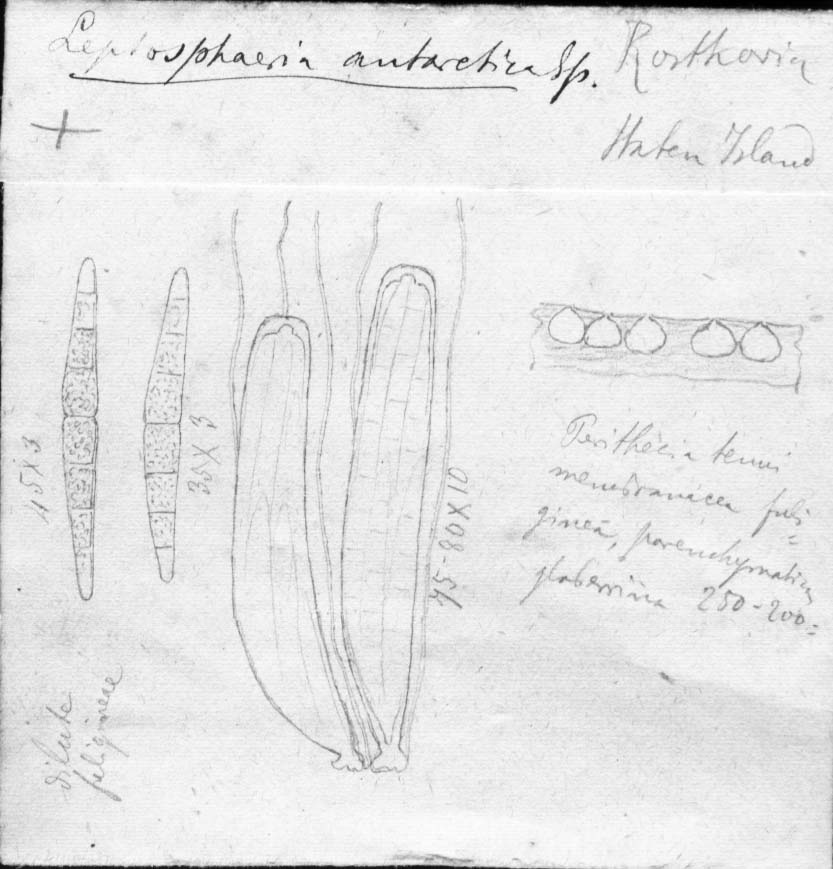 Leptosphaeria antarctica Sp.
Rostkovia
Staten Island
+
45 X 3
35 X 3
75-80 X 10
Perithecia tenui
membranacea fuli=
ginea, parenchymatica
glaberrima 250-200=
dilute
fuligineae